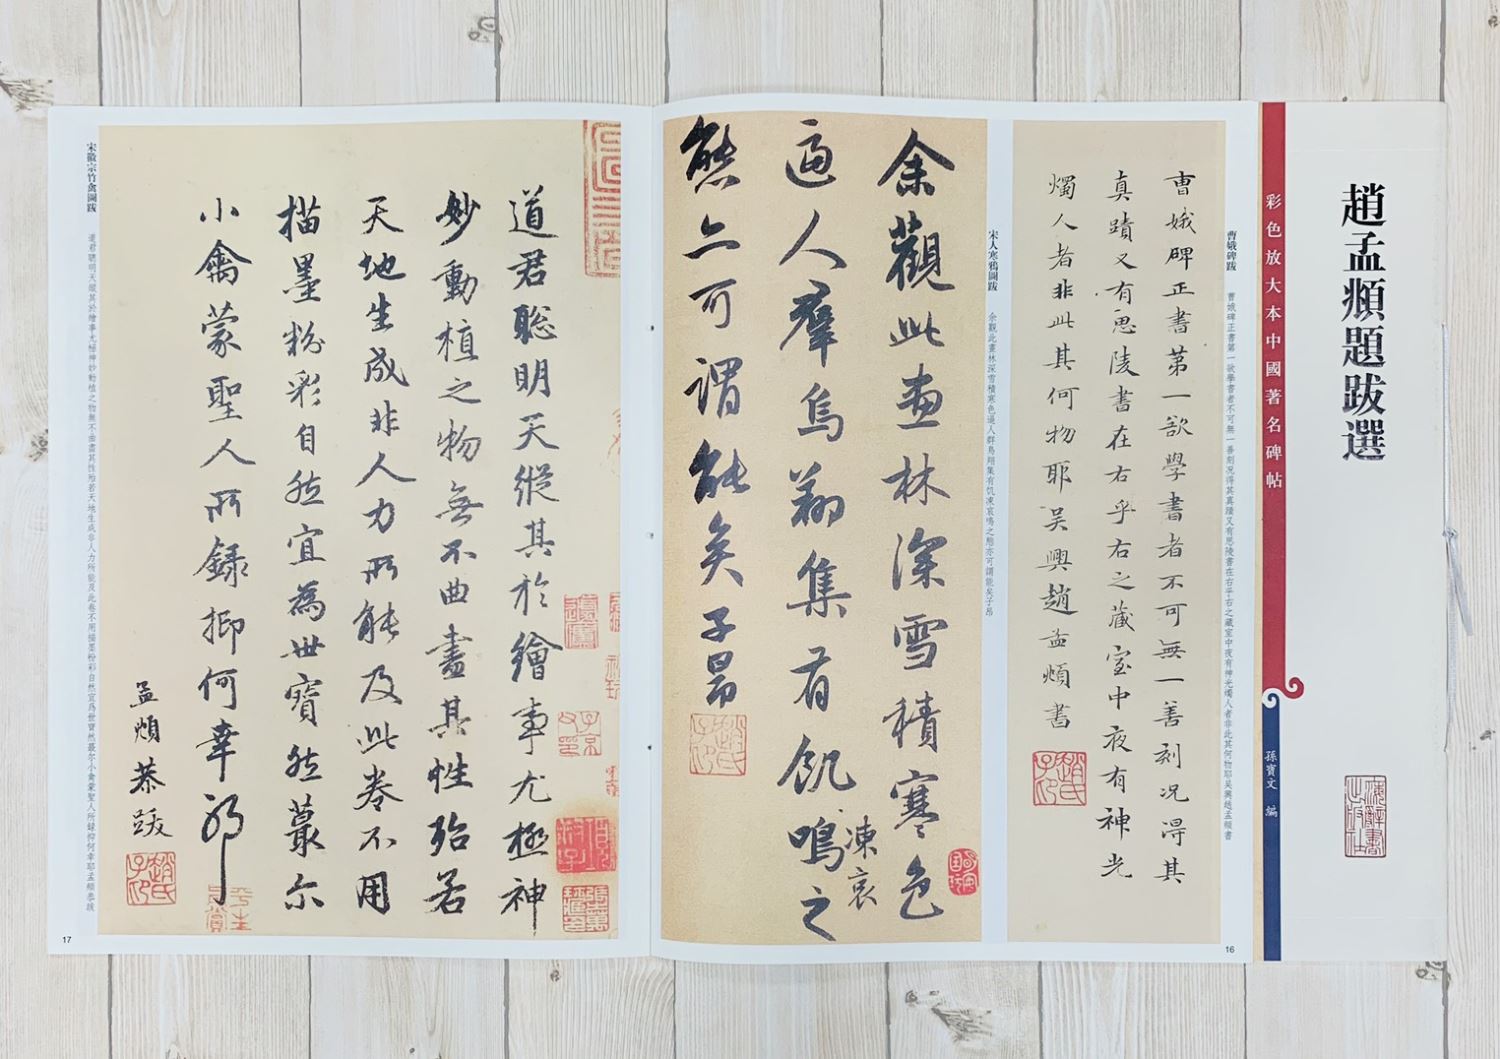 趙孟頫題跋選
彩色放大本中國著名碑帖
孫寶文 編
曹娥碑跋
曹娥碑正書第一欲學書者不可無一善刻况得其真蹟又有思陵書在右乎右之藏室中夜有神光燭人者非此其何物耶吴興趙孟頫書
曹娥碑正書第一欲學書者不可無一善刻况得其
真蹟又有思陵書在右乎右之藏室中夜有神光
燭人者非此其何物耶吴興趙孟頫書
16
宋人寒鴉圖跋
余觀此畫林深雪積寒色逼人群鳥翔集有饥凍哀鳴之態亦可謂能矣子昂
余觀此畫林深雪積寒色
逼人羣鳥翔集有飢鳴之
凍哀
態亦可謂能矣子昂
宋徽宗竹禽圖跋
道君聰明天縱其於繪事尤極神妙動植之物無不曲盡其性殆若天地生成非人力所能及此卷不用描墨粉彩自然宜爲世寶然蕞尔小禽蒙聖人所録抑何幸耶孟頫恭跋
道君聰明天縱其於繪事尤極神
妙動植之物無不曲盡其性殆若
天地生成非人力所能及此卷不用
描墨粉彩自然宜為世寶然蕞尔
小禽蒙聖人所録抑何幸耶
孟頫恭跋
趙氏子昂
17